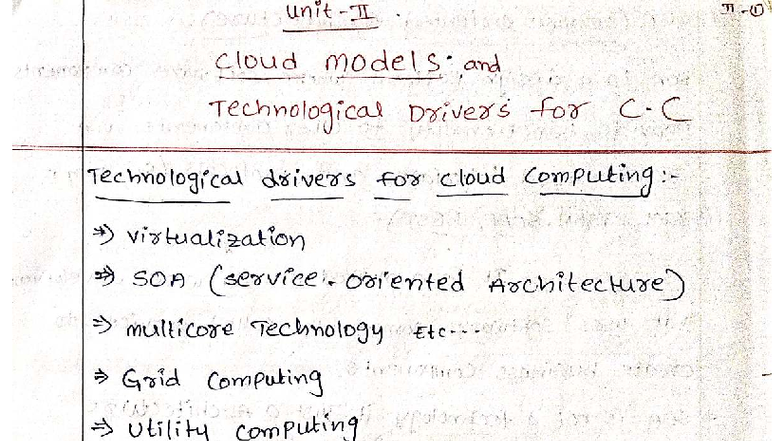 Unit-II
II-①
Cloud models and
Technological Drivers for C.C
Technological drivers for cloud Computing:-
⇒ virtualization
⇒ SOA (service-oriented Architecture)
⇒ multicore Technology Etc...
⇒ Grid Computing
⇒ Utility Computing